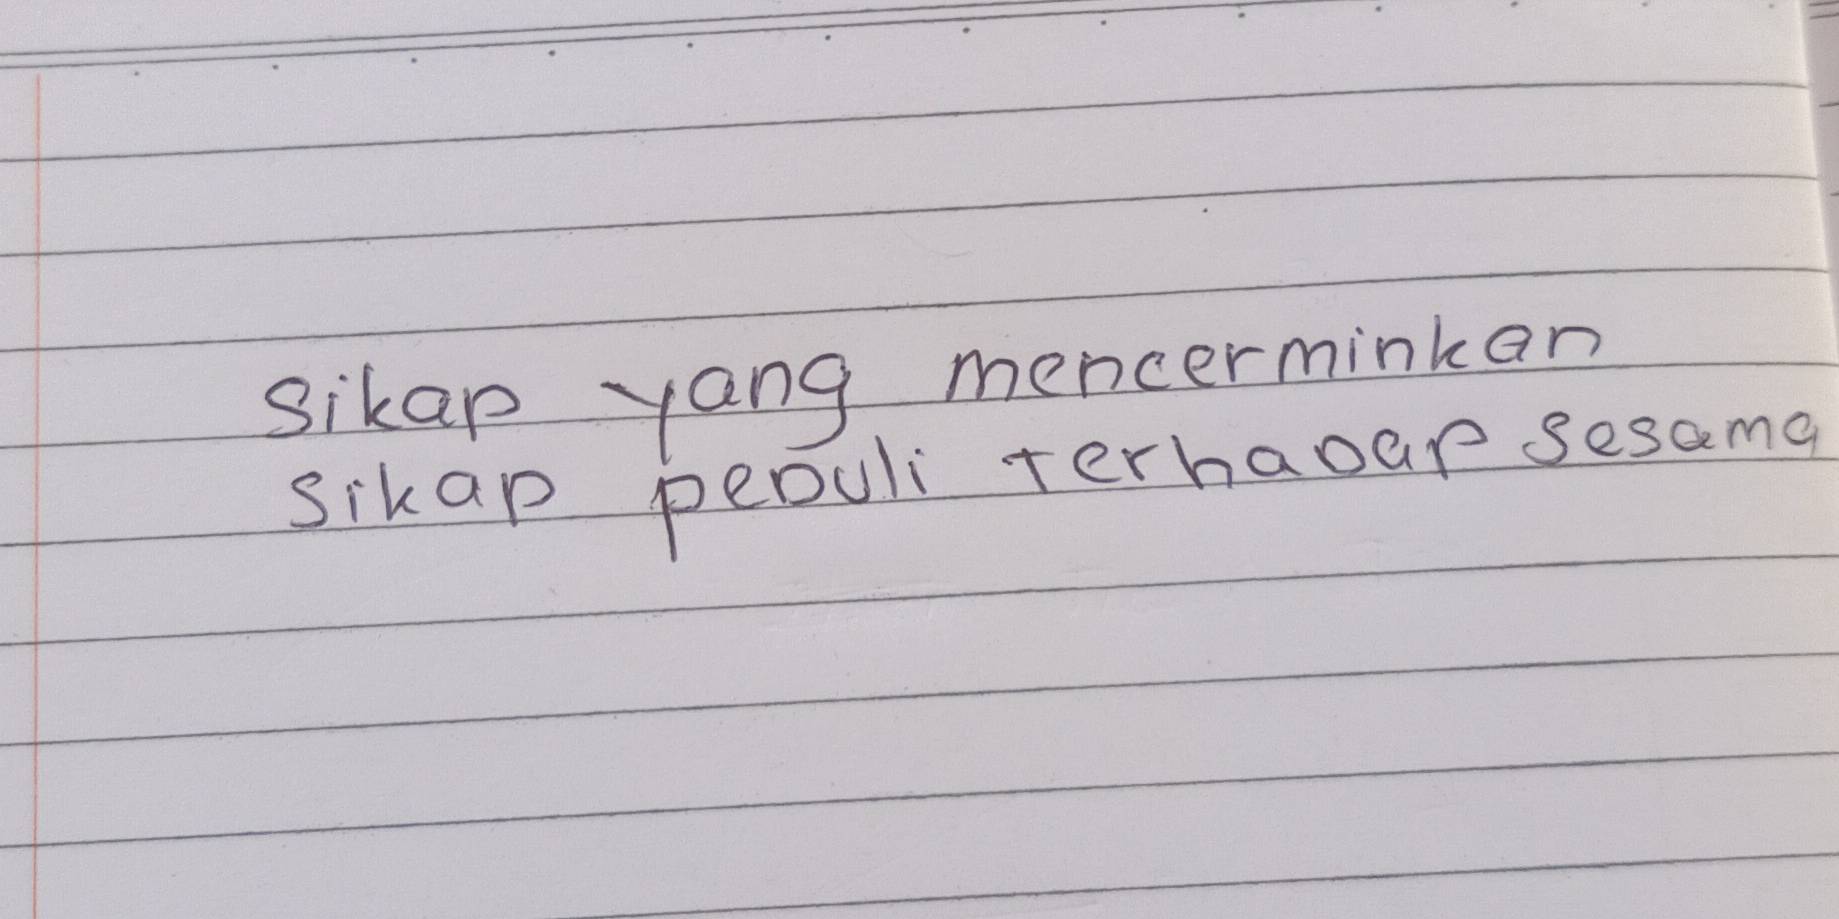 Sikap yang mencerminkan
Sikap peduli terhadap sesama